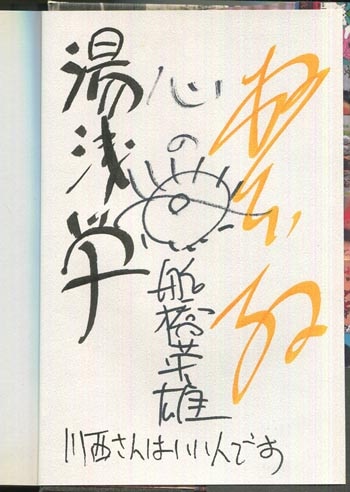 心の
船橋英雄
湯浅学
川西さんはいいんです